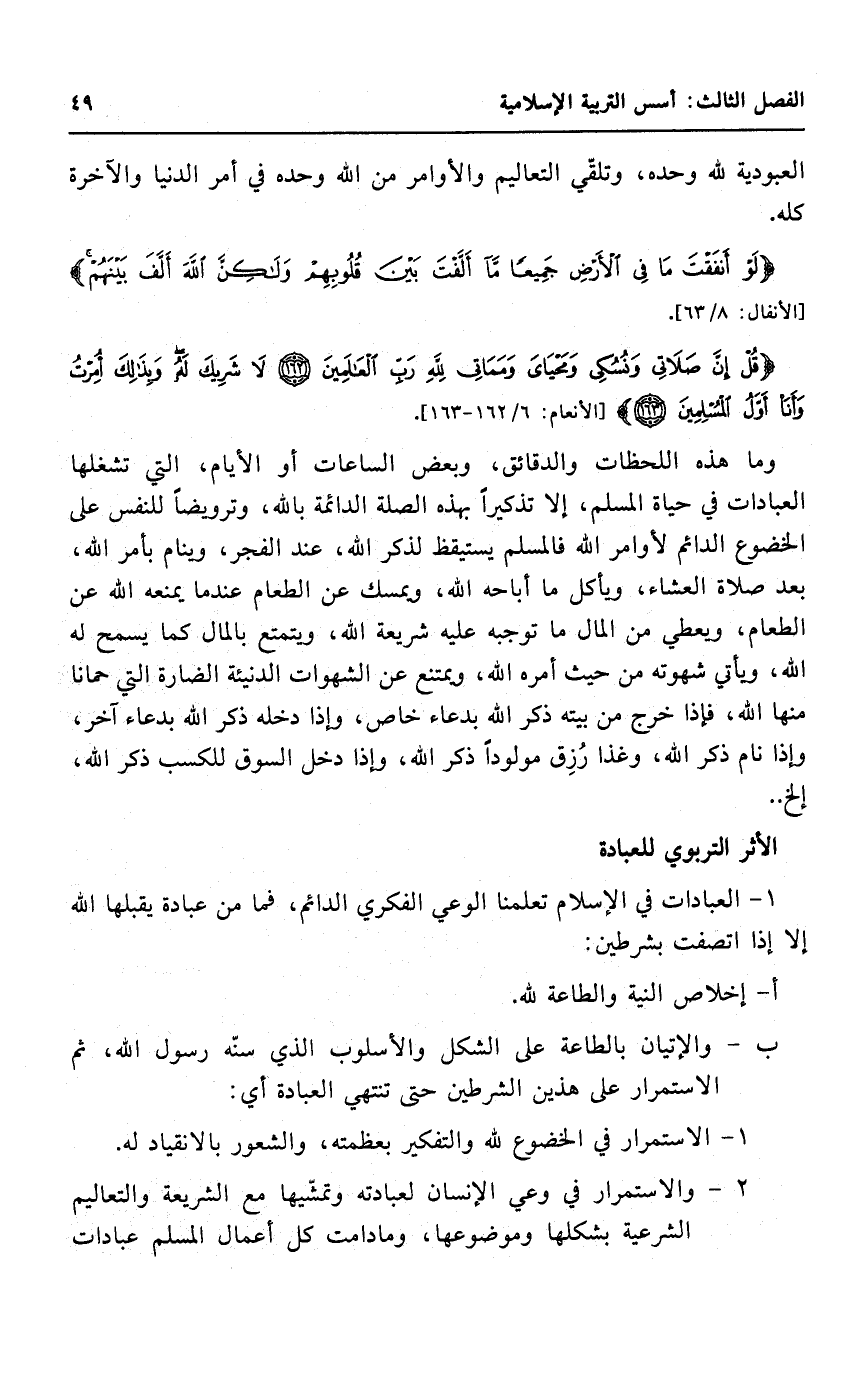 الفصل الثالث: أسس التربية الإسلامية ٤٩
العبودية لله وحده، وتلقّي التعاليم والأوامر من الله وحده في أمر الدنيا والآخرة
كله.
﴿لَوْ أَنفَقْتَ مَا فِي ٱلْأَرْضِ جَمِيعًا مَّآ أَلَّفْتَ بَيْنَ قُلُوبِهِمْ وَلَٰكِنَّ ٱللَّهَ أَلَّفَ بَيْنَهُمْ ۚ﴾
[الأنفال: ٦٣/٨].
﴿قُلْ إِنَّ صَلَاتِي وَنُسُكِي وَمَحْيَايَ وَمَمَاتِي لِلَّهِ رَبِّ ٱلْعَالَمِينَ ۝١٦٢ لَا شَرِيكَ لَهُۥ ۖ وَبِذَٰلِكَ أُمِرْتُ
وَأَنَا۠ أَوَّلُ ٱلْمُسْلِمِينَ ۝١٦٣﴾ [الأنعام: ١٦٢/٦-١٦٣].
وما هذه اللحظات والدقائق، وبعض الساعات أو الأيام، التي تشغلها
العبادات في حياة المسلم، إلا تذكيراً بهذه الصلة الدائمة بالله، وترويضاً للنفس على
الخضوع الدائم لأوامر الله فالمسلم يستيقظ لذكر الله، عند الفجر، وينام بأمر الله،
بعد صلاة العشاء، ويأكل ما أباحه الله، ويمسك عن الطعام عندما يمنعه الله عن
الطعام، ويعطي من المال ما توجبه عليه شريعة الله، ويتمتع بالمال كما يسمح له
الله، ويأتي شهوته من حيث أمره الله، ويمتنع عن الشهوات الدنيئة الضارة التي حمانا
منها الله، فإذا خرج من بيته ذكر الله بدعاء خاص، وإذا دخله ذكر الله بدعاء آخر،
وإذا نام ذكر الله، وغذا رُزِق مولوداً ذكر الله، وإذا دخل السوق للكسب ذكر الله،
إلخ..
الأثر التربوي للعبادة
١- العبادات في الإسلام تعلمنا الوعي الفكري الدائم، فما من عبادة يقبلها الله
إلا إذا اتصفت بشرطين:
أ- إخلاص النية والطاعة لله.
ب - والإتيان بالطاعة على الشكل والأسلوب الذي سنّه رسول الله، ثم
الاستمرار على هذين الشرطين حتى تنتهي العبادة أي:
١- الاستمرار في الخضوع لله والتفكير بعظمته، والشعور بالانقياد له.
٢ - والاستمرار في وعي الإنسان لعبادته وتمشّيها مع الشريعة والتعاليم
الشرعية بشكلها وموضوعها، ومادامت كل أعمال المسلم عبادات